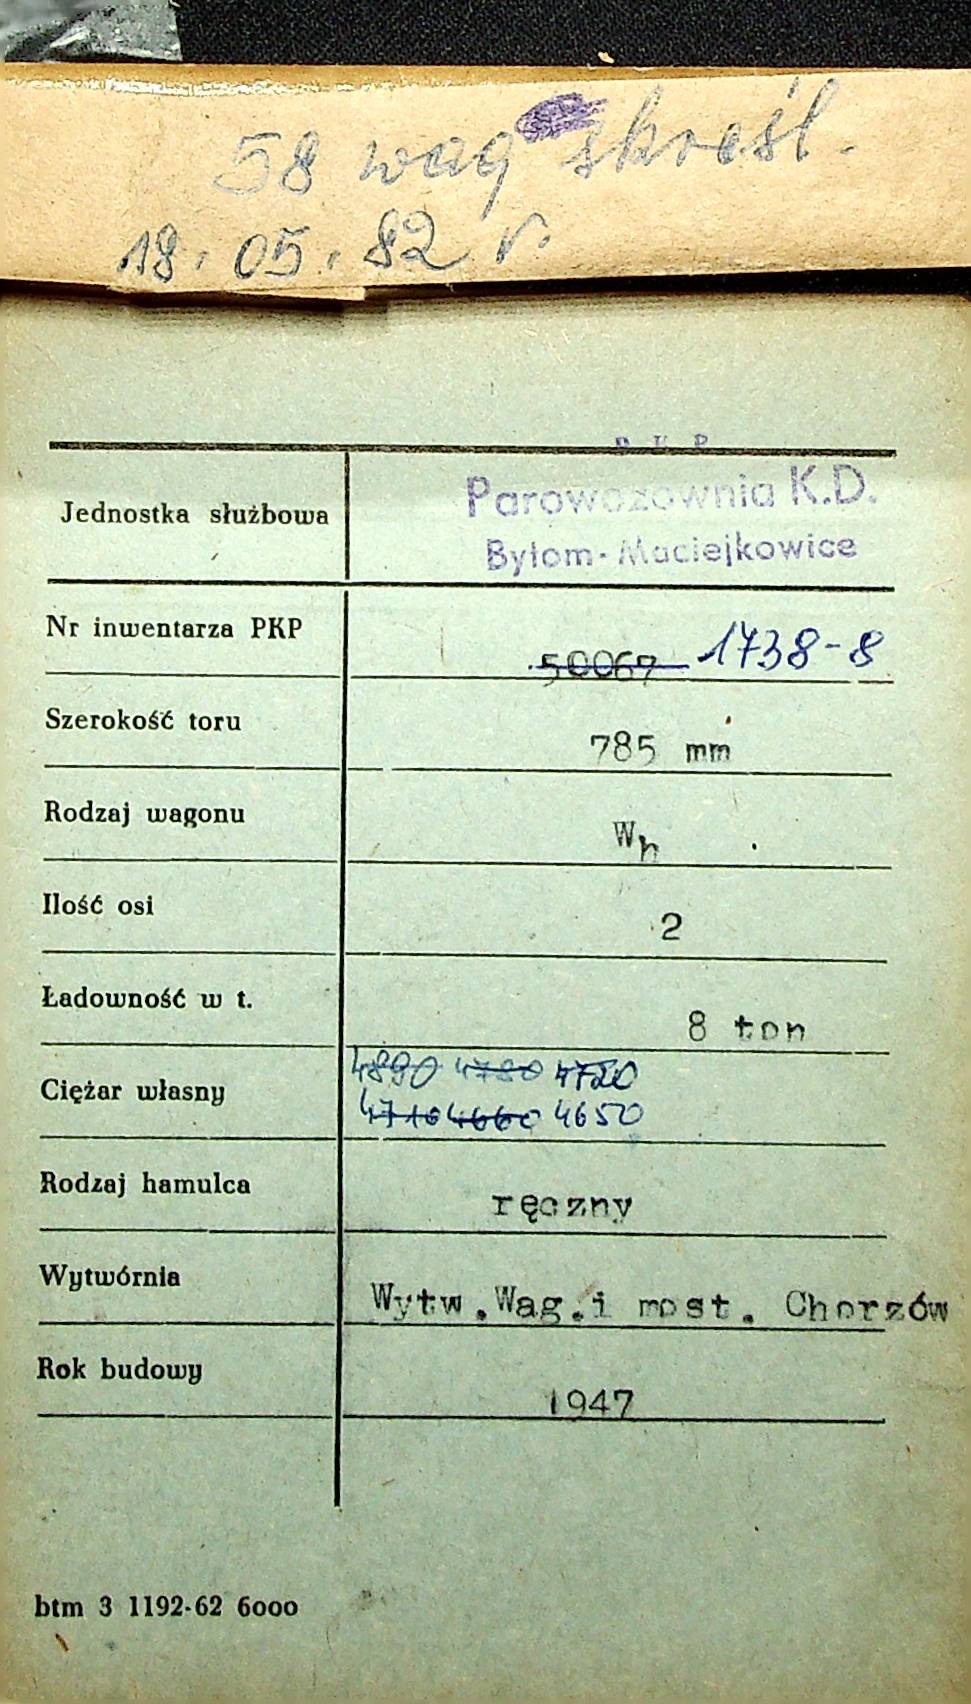 58 wag skreśl.
18.05.82 r.
P K P
Jednostka służbowa Parowozownia K.D.
Bytom-Maciejkowice
Nr inwentarza PKP 50067 1738-8
Szerokość toru 785 mm
Rodzaj wagonu Wh
Ilość osi 2
Ładowność w t. 8 ton
4890 4780 4720
Ciężar własny 4710 4660 4650
Rodzaj hamulca ręczny
Wytwórnia Wytw.Wag.i most. Chorzów
Rok budowy 1947
btm 3 1192-62 6000